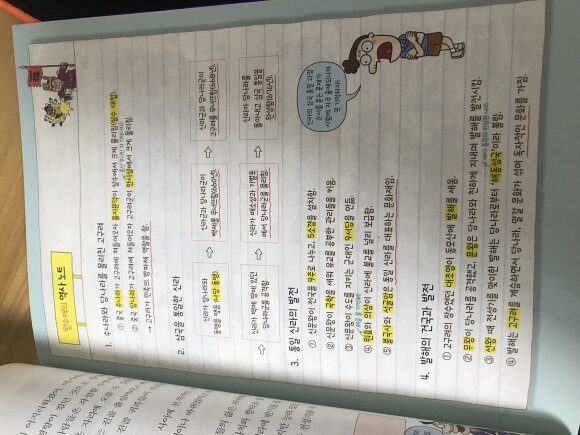 왕수재의 역사 노트
1. 수나라와 당나라를 물리친 고구려
① 중국 수나라가 고구려에 쳐들어오자 을지문덕이 살수에서 크게 물리침(살수 대첩).
② 중국 당나라가 고구려에 쳐들어오자 고구려군이 안시성에서 크게 물리침.
→ 고구려가 민족의 방파제 역할을 함.
2. 삼국을 통일한 신라
신라가 당나라와 동맹을 맺음(나당 동맹).
신라군과 당나라군이 백제를 무너뜨림(660년).
신라군과 당나라군이 고구려를 무너뜨림(668년).
신라가 평양에 있던 당나라군을 공격함.
신라가 매소성과 기벌포에서 당나라군을 물리침.
신라가 당나라를 몰아내고 삼국 통일을 완성함(676년).
신라의 삼국 통일 과정
순서를 묻는 문제가
시험에 자주 출제되니까
꼭 기억하자!
3. 통일 신라의 발전
① 신문왕이 전국을 9주로 나누고, 5소경을 설치함.
② 신문왕이 국학을 세워 유교를 공부한 관리들을 키움.
③ 신문왕이 수도를 지키는 군대인 9서당을 만듦.
④ 원효와 의상이 신라에 불교를 널리 보급함.
⑤ 불국사와 석굴암은 통일 신라를 대표하는 문화재임.
4. 발해의 건국과 발전
① 고구려의 장수였던 대조영이 동모산에 발해를 세움.
② 무왕이 당나라를 공격하고, 문왕은 당나라와 친하게 지내며 발해를 발전시킴.
③ 선왕 때 전성기를 맞이한 발해는 당나라로부터 '해동성국'이라 불림.
④ 발해는 고구려를 계승하면서 당나라, 말갈 문화가 섞여 독자적인 문화를 가짐.